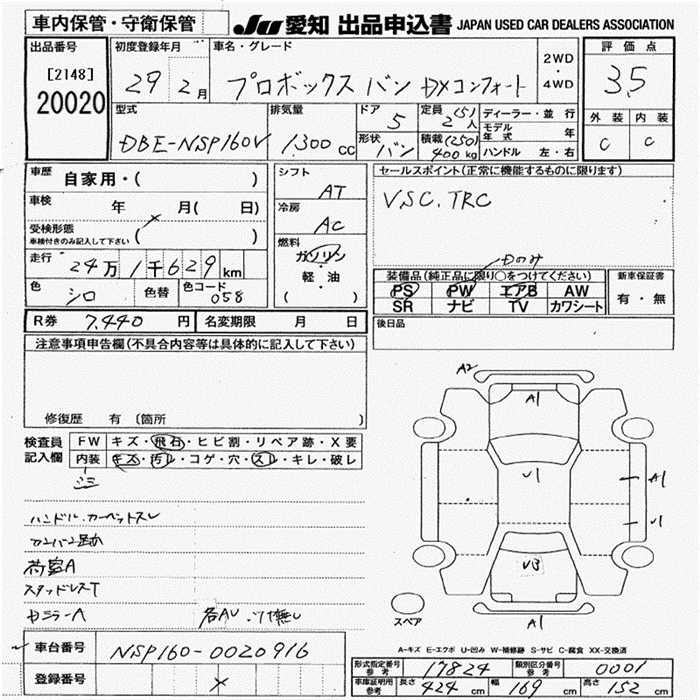 車内保管・守衛保管
JU 愛知 出品申込書 JAPAN USED CAR DEALERS ASSOCIATION
出品番号
[2148]
20020
初度登録年月
29 2月
車名・グレード
プロボックス バン DXコンフォート
2WD
・
4WD
評価点
3.5
外装 内装
C C
型式
DBE-NSP160V
排気量
1300 CC
ドア
5
形状
バン
定員 (5)
2人
積載 (250)
400kg
ディーラー・並行
モデル年式 年
ハンドル 左・右
車歴 自家用・( )
車検 年 月( 日)
受検形態
車検付きのみ記入して下さい ( )
走行 24万1千629km
色 シロ 色替 色コード 058
シフト
AT
冷房
AC
燃料
ガソリン
・
軽・油
( )
セールスポイント(正常に機能するものに限ります)
VSC.TRC
Dのみ
装備品(純正品に限り○をつけてください)
PS PW エアB AW
SR ナビ TV カワシート
新車保証書
有・無
R券 7,440円 名変期限 月 日
後日品
注意事項申告欄(不具合内容等は具体的に記入して下さい)
修復歴 有 〔箇所 〕
検査員
記入欄
FW キズ・飛石・ヒビ割・リペア跡・X要
内装 キズ・汚レ・コゲ・穴・スレ・キレ・破レ
ハンドル.カーペットスレ
荷室A
スタッドレスT
DミラーA 各AU
A2
A1
U1
A1
U1
U3
A1
スペア
A-キズ E-エクボ U-凹み W-補修跡 S-サビ C-腐食 XX-交換済
車台番号 NSP160-0020916
登録番号 X
形式指定番号 参考 17824 類別区分番号 参考 0001
車庫証明用 参考 長さ 424cm 幅 169cm 高さ 152cm